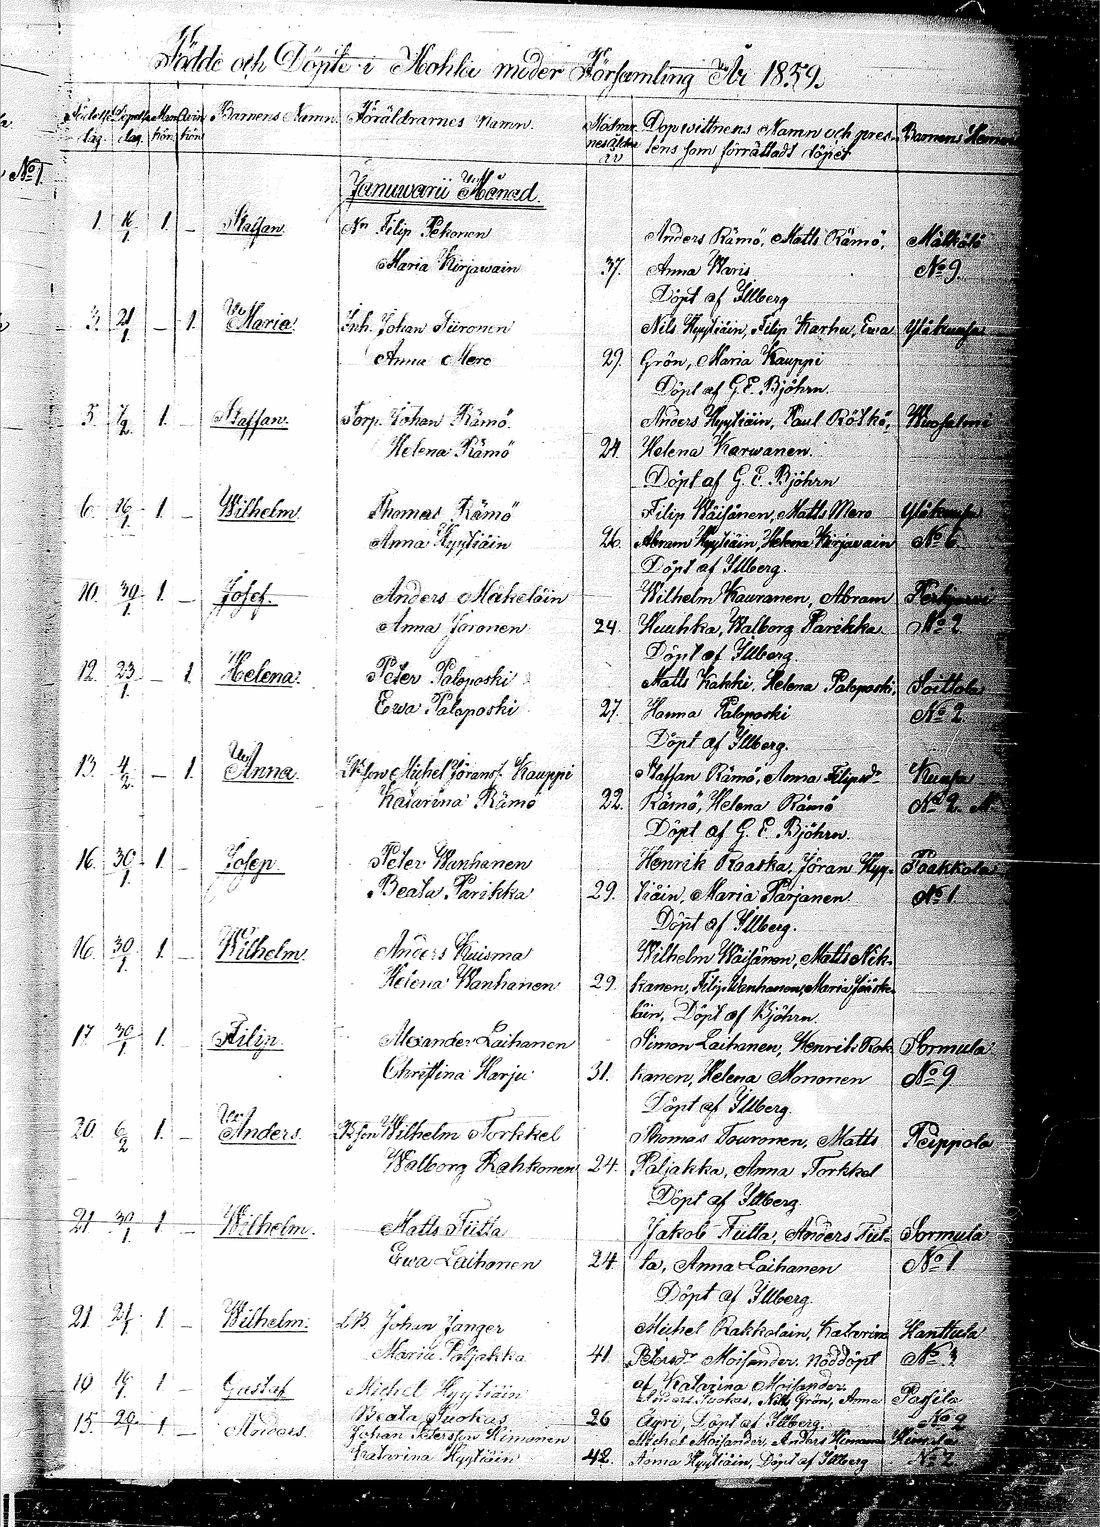 Födde och Döpte i Mohla moder Församling År 1859.
Födelse dag. Döpelse dag. Man kön. Qvin kön Barnens Namn. Föräldrarnes Namn. Modrar nes ålder Dopwittnens Namn och pres- Barnens Hemvi
tens som förrättadt döpet
No 1.
Januwarii Månad.
1. 16/1 1. – Staffan. Filip Pekonen Anders Rämö, Matts Rämö, Mälkölä
Maria Kirjawain 37. Anna Waris No 9.
Döpt af Illberg
3. 21/1 – 1. Maria Inh. Johan Tiironen Nils Hyytiäin, Filip Karhu, Ewa Yläkuusa
Anna Mero 29. Grön, Maria Kauppi
Döpt af G. E. Bjöhrn.
5. 7/2 1. – Staffan. Torp. Johan Rämö. Anders Hyytiäin, Paul Rötkö, Wuosalmi
Helena Rämö 24. Helena Karwanen.
Döpt af G. E. Bjöhrn
6. 16/1 1. – Wilhelm. Thomas Rämö Filip Wäisänen, Matts Mero Yläkuusa
Anna Hyytiäin 26. Abram Hyytiäin, Helena Kirjawain No 6.
Döpt af Illberg.
10. 30/1 1. – Josef. Anders Mäkeläin Wilhelm Kauranen, Abram Perkjärvi
Anna Joronen 24. Huuhka, Walborg Parikka No 2
Döpt af Illberg
12. 23/1 – 1. Helena. Peter Paloposki Matts Kakki, Helena Paloposki, Soittola
Ewa Paloposki 27. Hanna Paloposki No 2.
Döpt af Illberg.
13. 4/2 – 1. Anna. Michel Jöransf. Kauppi Staffan Rämö, Anna Filipsdr Kuusa
Katarina Rämö 22. Rämö, Helena Rämö No 2.
Döpt af G. E. Bjöhrn.
16. 30/1 1. – Josep. Peter Wanhanen Henrik Raaska, Jöran Hyy- Paakkola
Beata Parikka 29. tiäin, Maria Parjanen No 1.
Döpt af Illberg.
16. 30/1 1. – Wilhelm. Anders Kuisma Wilhelm Wäisänen, Matts Nik-
Helena Wanhanen 29. kanen, Filip Wanhanen, Maria Jääske-
läin, Döpt af Bjöhrn.
17. 30/1 1. – Filip. Alexander Laihanen Simon Laihanen, Henrik Rok- Sormula
Christina Harju 31. kanen, Helena Mononen No 9
Döpt af Illberg.
20. 6/2 1. – Anders. Wilhelm Torkkel Thomas Touronen, Matts Peippola
Walborg Rahkonen 24. Paljakka, Anna Torkkel
Döpt af Illberg.
21. 30/1 1. – Wilhelm. Matts Tiitta Jakob Tiitta, Anders Tiit- Sormula
Ewa Laihanen 24. ta, Anna Laihanen No 1.
Döpt af Illberg
21. 1. – Wilhelm. Johan Janger Michel Rakkolain, Katarina Hanttula
Maria Paljakka 41. Petersdr Moisander. nöddöpt No 3
af Katarina Moisander.
19 1 – Gustaf Michel Hyytiäin Anders Suokas, Nils Grön, Anna Pasila
Beata Suokas 26 Äyri, Döpt af Illberg. No 2
15. 1. – Anders. Johan Petersson Himonen Michel Moisander, Anders Himonen
Katarina Hyytiäin 42. Anna Hyytiäin, Döpt af Illberg No 2